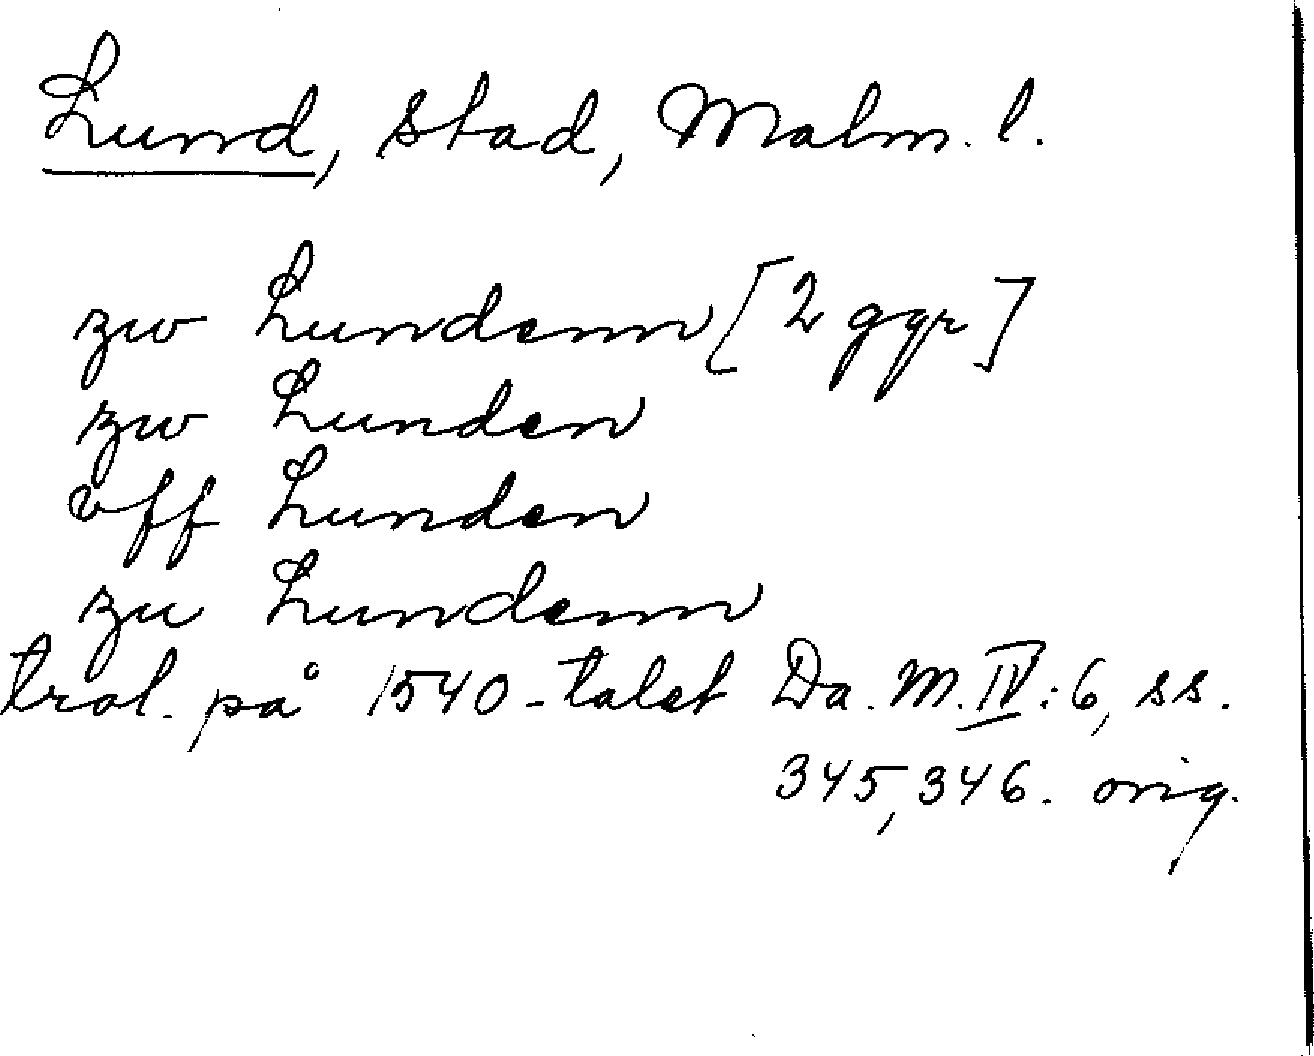 Lund, stad, Malm. l.
zw Lundenn [2 ggr]
zw Lunden
vff Lunden
zu Lundenn
trol. på 1540-talet Da. M. IV: 6, ss.
345, 346. orig.